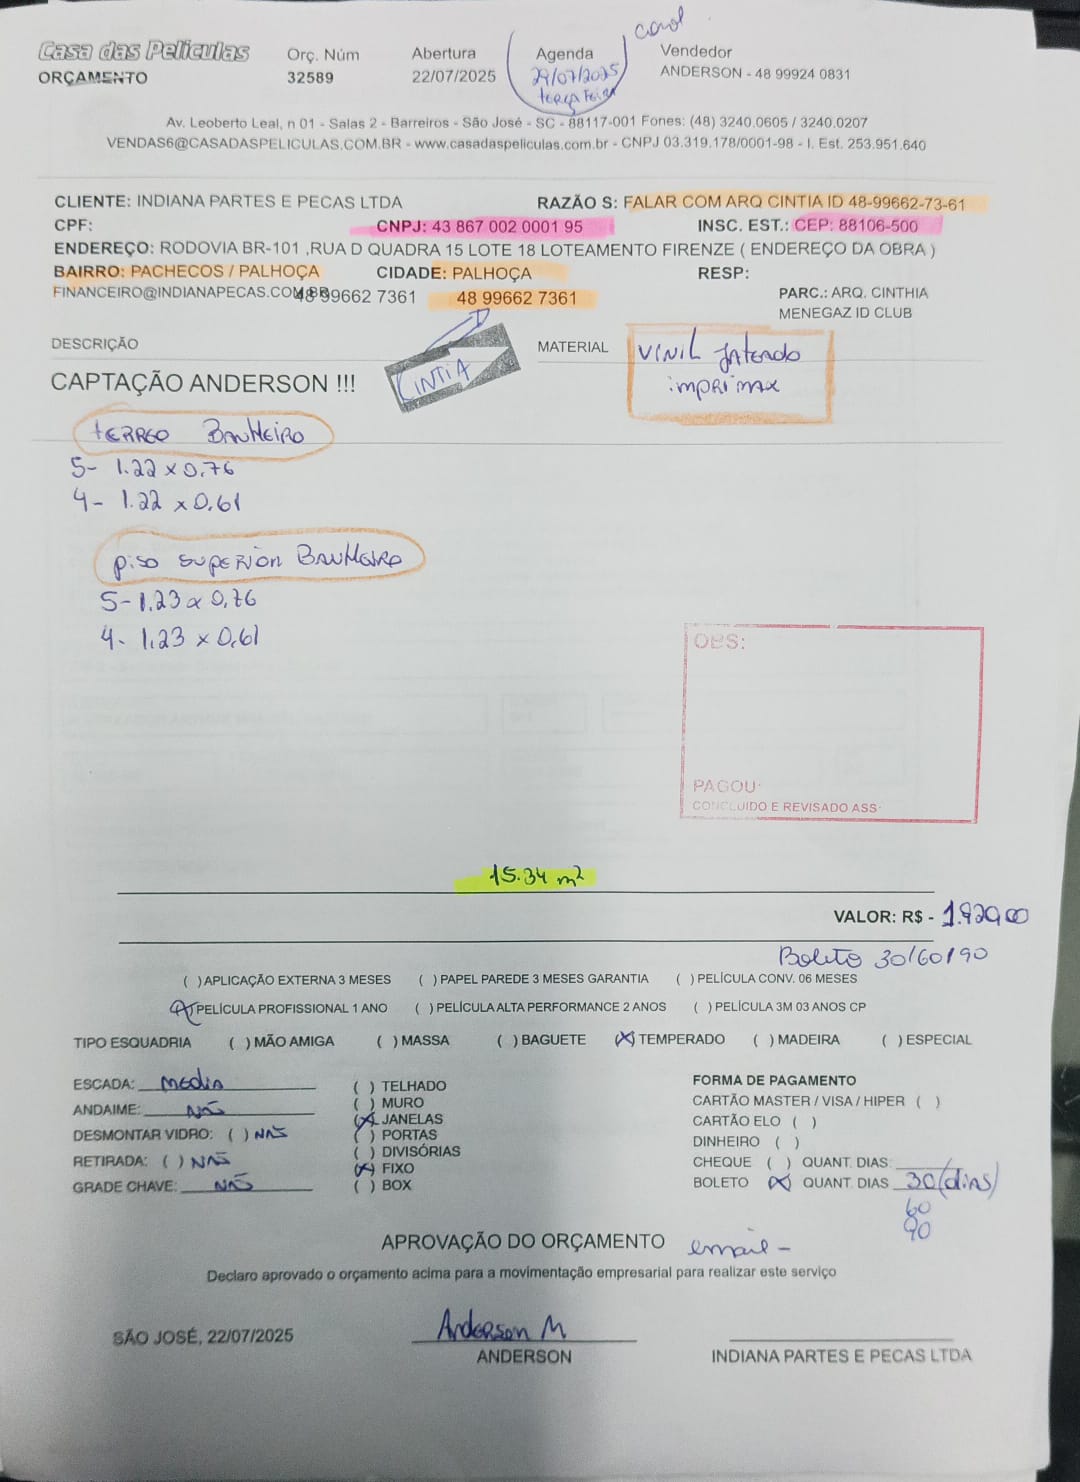 Casa das Peliculas
ORÇAMENTO
Orç. Núm
32589
Abertura
22/07/2025
Agenda
29/07/2025
terça feira
Vendedor
ANDERSON - 48 99924 0831
Av. Leoberto Leal, n 01 - Salas 2 - Barreiros - São José - SC - 88117-001 Fones: (48) 3240.0605 / 3240.0207
VENDAS6@CASADASPELICULAS.COM.BR - www.casadaspeliculas.com.br - CNPJ 03.319.178/0001-98 - I. Est. 253.951.640
CLIENTE: INDIANA PARTES E PECAS LTDA
RAZÃO S: FALAR COM ARQ CINTIA ID 48-99662-73-61
CPF:
CNPJ: 43 867 002 0001 95
INSC. EST.: CEP: 88106-500
ENDEREÇO: RODOVIA BR-101 ,RUA D QUADRA 15 LOTE 18 LOTEAMENTO FIRENZE ( ENDEREÇO DA OBRA )
BAIRRO: PACHECOS / PALHOÇA
CIDADE: PALHOÇA
RESP:
FINANCEIRO@INDIANAPECAS.COM.BR
48 99662 7361
48 99662 7361
PARC.: ARQ. CINTHIA
MENEGAZ ID CLUB
DESCRIÇÃO
CINTIA
MATERIAL
VINIL Jateado
imprimax
CAPTAÇÃO ANDERSON !!!
terreo Banheiro
5- 1.22 x 0,76
4- 1.22 x 0,61
piso superior Banheiro
5- 1,23 x 0,76
4- 1,23 x 0,61
OBS:
PAGOU:
CONCLUIDO E REVISADO ASS:
15.34 m²
VALOR: R$ - 1.929,00
Boleto 30/60/90
( ) APLICAÇÃO EXTERNA 3 MESES ( ) PAPEL PAREDE 3 MESES GARANTIA ( ) PELÍCULA CONV. 06 MESES
(X) PELÍCULA PROFISSIONAL 1 ANO ( ) PELÍCULA ALTA PERFORMANCE 2 ANOS ( ) PELÍCULA 3M 03 ANOS CP
TIPO ESQUADRIA ( ) MÃO AMIGA ( ) MASSA ( ) BAGUETE (X) TEMPERADO ( ) MADEIRA ( ) ESPECIAL
ESCADA: media
ANDAIME: NÃO
DESMONTAR VIDRO: ( ) NÃO
RETIRADA: ( ) NÃO
GRADE CHAVE: NÃO
( ) TELHADO
( ) MURO
(X) JANELAS
( ) PORTAS
( ) DIVISÓRIAS
(X) FIXO
( ) BOX
FORMA DE PAGAMENTO
CARTÃO MASTER / VISA / HIPER ( )
CARTÃO ELO ( )
DINHEIRO ( )
CHEQUE ( ) QUANT. DIAS:
BOLETO (X) QUANT. DIAS 30 (dias)
60
90
APROVAÇÃO DO ORÇAMENTO email -
Declaro aprovado o orçamento acima para a movimentação empresarial para realizar este serviço
SÃO JOSÉ, 22/07/2025
Anderson M
ANDERSON
INDIANA PARTES E PECAS LTDA